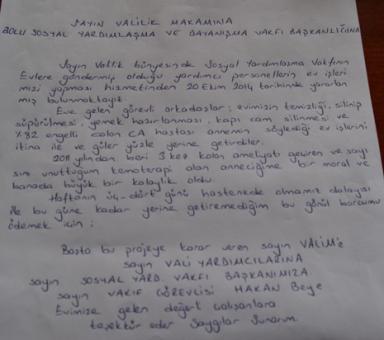 SAYIN VALİLİK MAKAMINA
BOLU SOSYAL YARDIMLAŞMA VE DAYANIŞMA VAKFI BAŞKANLIĞINA
Sayın Valilik bünyesinde Sosyal Yardımlaşma Vakfının
Evlere göndermiş olduğu yardımcı personellerin ev işleri
mizi yapması hizmetinden 20 Ekim 2014 tarihinde yararlan
mış bulunmaktayız.
Eve gelen görevli arkadaşlar; evimizin temizliği, silinip
süpürülmesi, yemek hazırlanması, kapı cam silinmesi ve
%82 engelli colon CA hastası annemin söylediği ev işlerini
itina ile ve güler yüzle yerine getirdiler.
2011 yılından beri 3 kez kolon ameliyatı geçiren ve sayı
sını unuttuğum kemoterapi alan anneciğime bir moral ve
banada büyük bir kolaylık oldu.
Haftanın üç-dört günü hastenede olmamız dolayısı
ile bu güne kadar yerine getiremediğim bu gönül borcumu
ödemek için;
Başta bu projeye karar veren sayın VALİM'e
sayın VALİ YARDIMCILARINA
sayın SOSYAL YARD. VAKFI BAŞKANIMIZA
sayın VAKIF GÖREVLİSİ HAKAN Beye
Evimize gelen değerli çalışanlara
teşekkür eder saygılar sunarım.